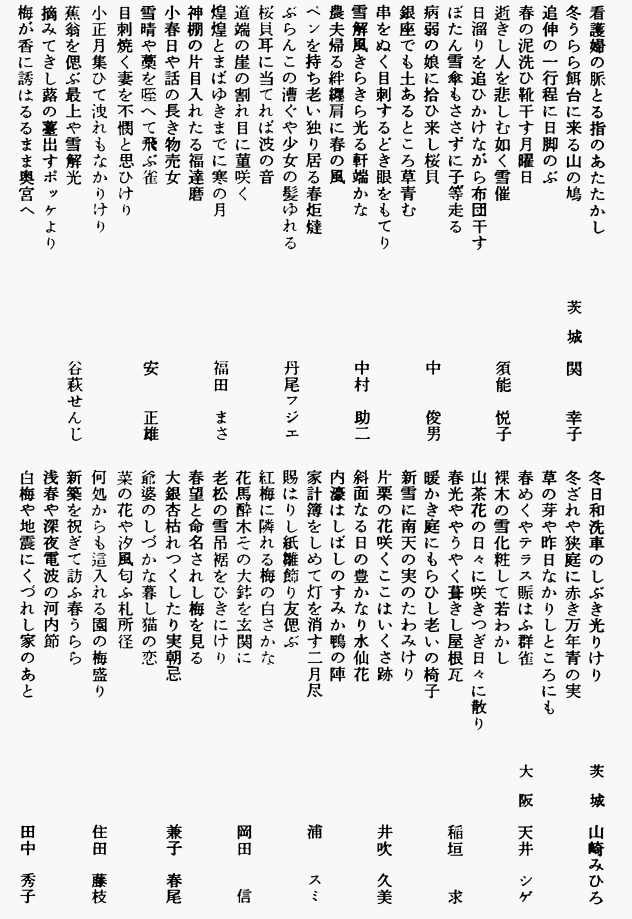 看護婦の脈とる指のあたたかし
冬うらら餌台に来る山の鳩
茨城 関 幸子
追伸の一行程に日脚のぶ
春の泥洗ひ靴干す月曜日
逝きし人を悲しむ如く雪催
須能 悦子
日溜りを追ひかけながら布団干す
ぼたん雪傘もささずに子等走る
病弱の娘に拾ひ来し桜貝
中 俊男
銀座でも土あるところ草青む
串をぬく目刺するどき眼をもてり
雪解風きらきら光る軒端かな
中村 助二
農夫帰る絆纏肩に春の風
ペンを持ち老い独り居る春炬燵
ぶらんこの漕ぐや少女の髪ゆれる
丹尾フジエ
桜貝耳に当てれば波の音
道端の崖の割れ目に菫咲く
煌煌とまばゆきまでに寒の月
福田 まさ
神棚の片目入れたる福達磨
小春日や話の長き物売女
雪晴や藁を咥へて飛ぶ雀
安 正雄
目刺焼く妻を不憫と思ひけり
小正月集ひて洩れもなかりけり
蕉翁を偲ぶ最上や雪解光
谷萩せんじ
摘みてきし蕗の薹出すポッケより
梅が香に誘はるるまま奥宮へ
冬日和洗車のしぶき光りけり
茨城 山崎みひろ
冬ざれや狭庭に赤き万年青の実
草の芽や昨日なかりしところにも
春めくやテラス賑はふ群雀
大阪 天井 シゲ
裸木の雪化粧して若わかし
山茶花の日々に咲きつぎ日々に散り
春光ややうやく葺きし屋根瓦
稲垣 求
暖かき庭にもらひし老いの椅子
新雪に南天の実のたわみけり
片栗の花咲くここはいくさ跡
井吹 久美
斜面なる日の豊かなり水仙花
内濠はしばしのすみか鴨の陣
家計簿をしめて灯を消す二月尽
浦 スミ
賜はりし紙雛飾り友偲ぶ
紅梅に隣れる梅の白さかな
花馬酔木その大鉢を玄関に
岡田 信
老松の雪吊裾をひきにけり
春望と命名されし梅を見る
大銀杏枯れつくしたり実朝忌
兼子 春尾
爺婆のしづかな暮し猫の恋
菜の花や汐風匂ふ札所径
何処からも這入れる園の梅盛り
住田 藤枝
新築を祝ぎて訪ふ春うらら
浅春や深夜電波の河内節
白梅や地震にくづれし家のあと
田中 秀子